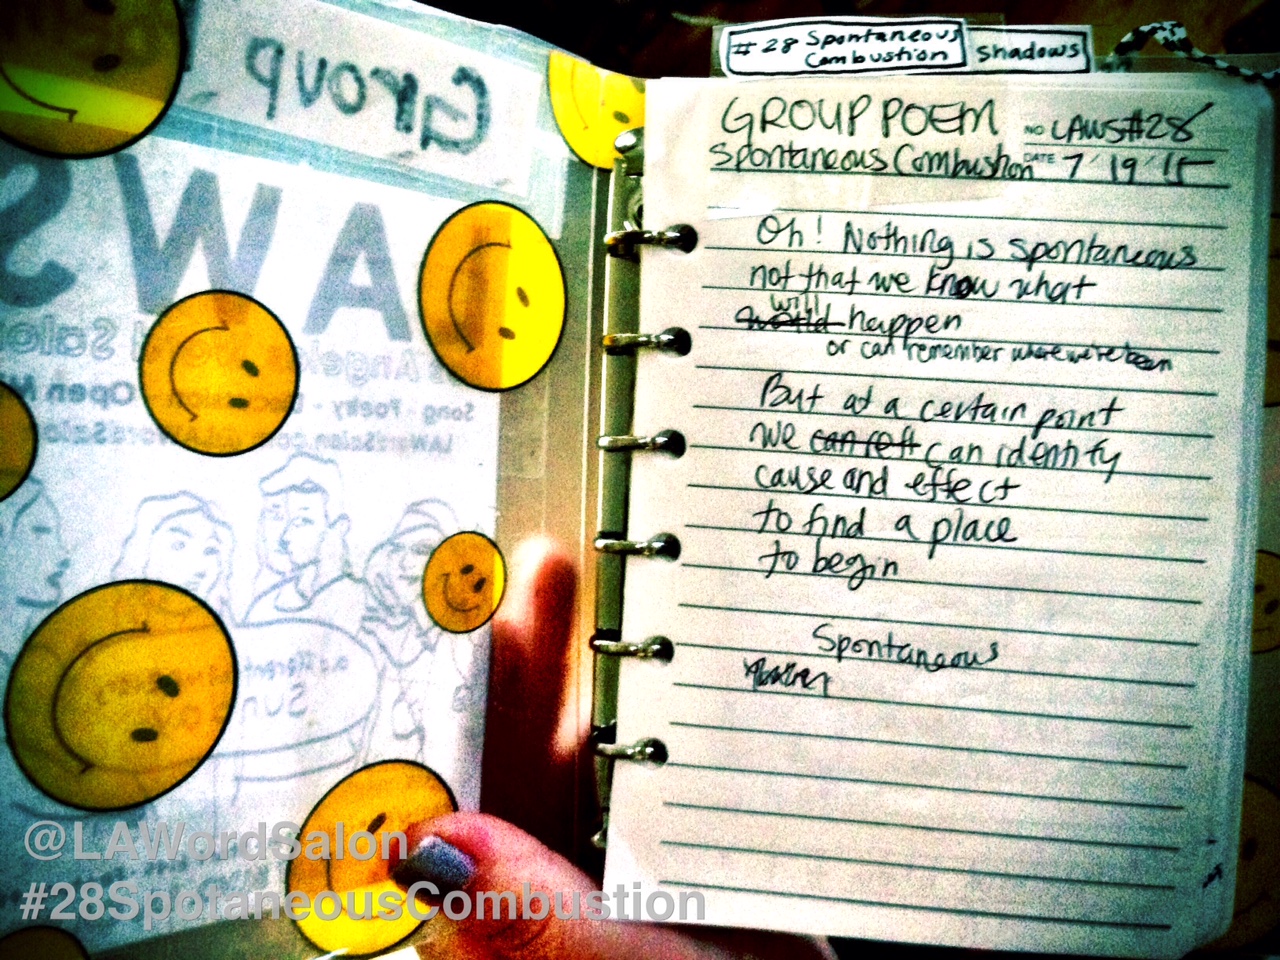 Group
#28 Spontaneous
Combustion
Shadows
AWS
Song - Poetry
GROUP POEM
NO LAWS#28
Spontaneous Combustion
DATE 7/19/15
Oh! Nothing is spontaneous
not that we know what
will
would happen
or can remember where we've been
But at a certain point
we can identify
cause and effect
to find a place
to begin
Spontaneous
@LAWordSalon
#28SpotaneousCombustion